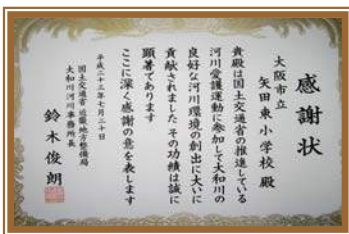 感謝状
大阪市立
矢田東小学校殿
貴殿は国土交通省の推進している
河川愛護運動に参加して大和川の
良好な河川環境の創出に大いに
貢献されました その功績は誠に
顕著であります
ここに深く感謝の意を表します
平成二十三年七月二十日
国土交通省 近畿地方整備局
大和川河川事務所長
鈴木俊朗